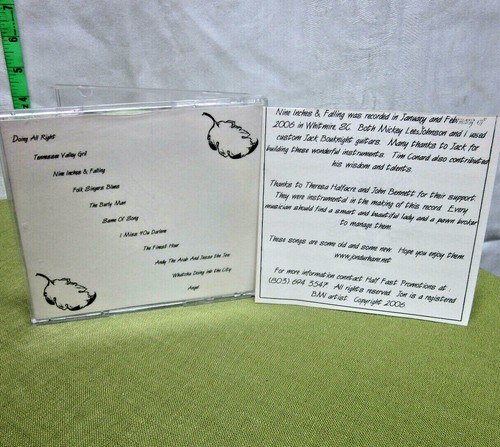 7
6
5
Doing All Right
Tennessee Valley Girl
Nine Inches & Falling
Folk Singers Blues
The Burly Man
Game Of Song
I Miss You Darlene
The Finest Hour
Andy The Arab And Jesse The Jew
Whatcha Doing in the City
Angel
Nine Inches & Falling was recorded in January and February of
2006 in Whitmire, SC. Both Mickey Lee Johnson and I used
custom Jack Bouknight guitars. Many thanks to Jack for
building these wonderful instruments. Tim Conard also contributed
his wisdom and talents.
Thanks to Theresa Halfacre and John Bennett for their support.
They were instrumental in the making of this record. Every
musician should find a smart and beautiful lady and a pawn broker
to manage them.
These songs are some old and some new. Hope you enjoy them.
www.jonderham.net
For more information conntact Half Fast Promotions at
(803) 694 3547. All rights reserved. Jon is a registered
BMI artist. Copyright 2006